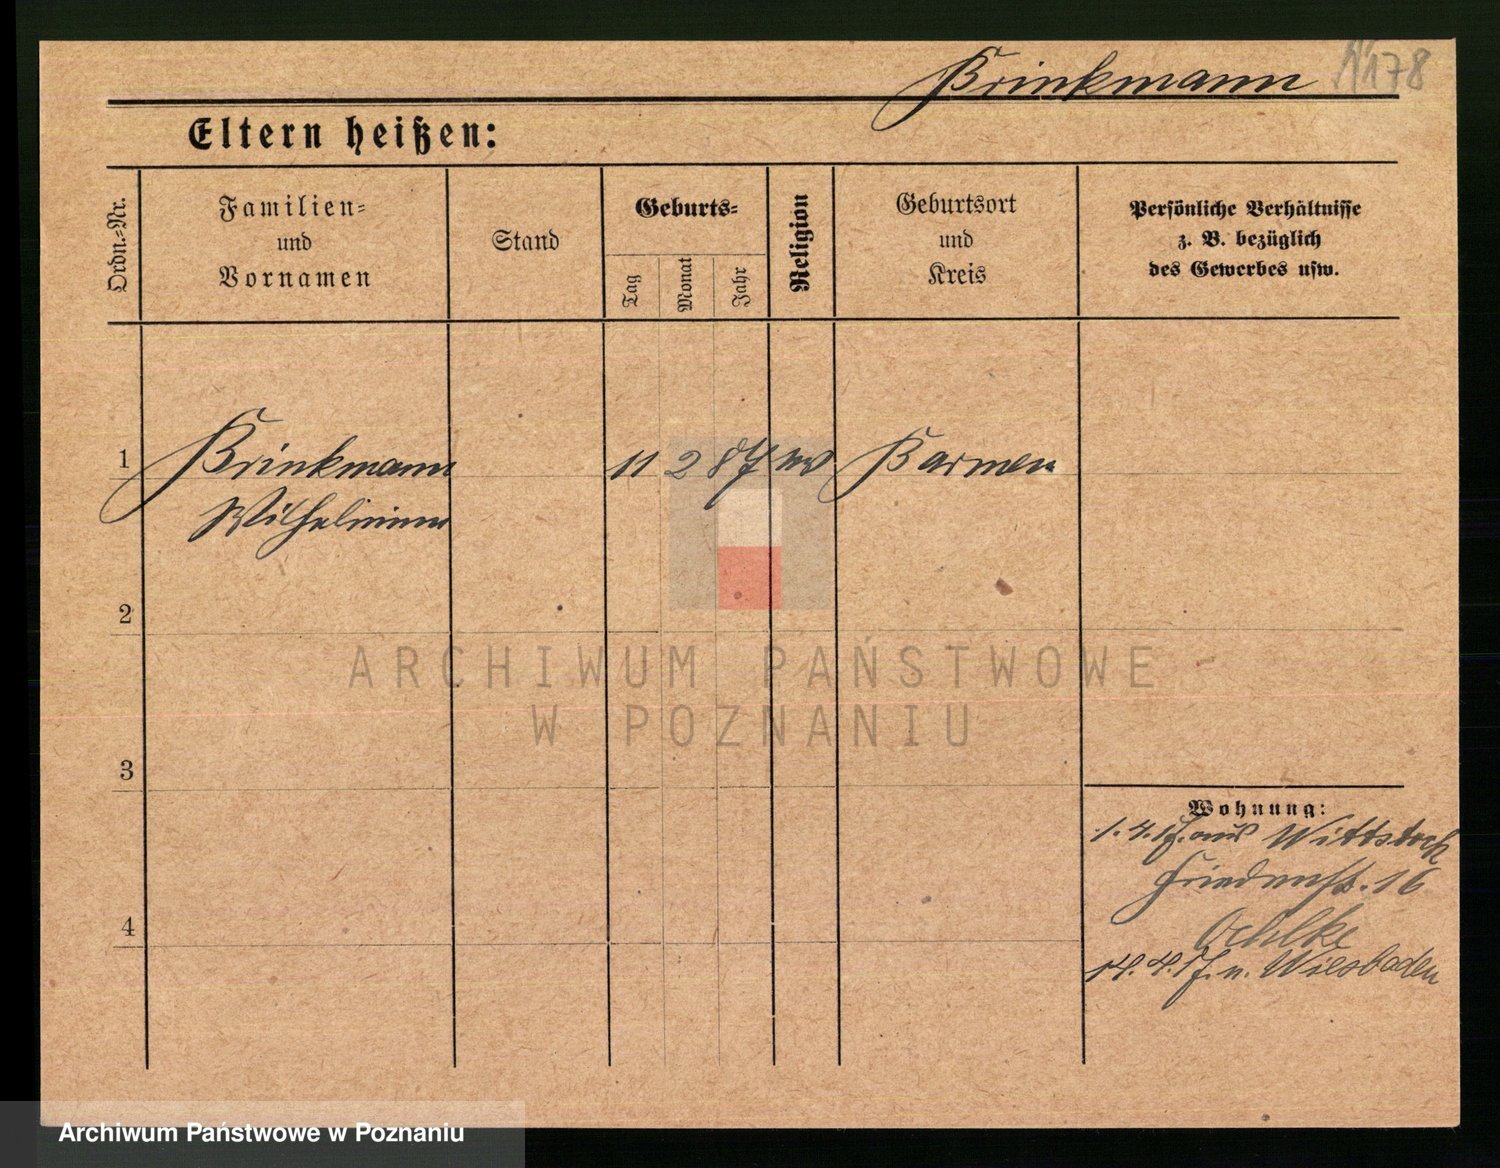 Brinkmann 178
Eltern heißen:
Ordn.-Nr.
Familien-
und
Vornamen
Stand
Geburts-
Tag
Monat
Jahr
Religion
Geburtsort
und
Kreis
Persönliche Verhältnisse
z. B. bezüglich
des Gewerbes usw.
1 Brinkmann 11 2 87 ev Barmen
Wilhelmine
2
ARCHIWUM PAŃSTWOWE
W POZNANIU
3
Wohnung:
1. 4. 17. aus Wittstock
Friedenstr. 16
Oehlke
4
14. 4. 17. n. Wiesbaden
Archiwum Państwowe w Poznaniu